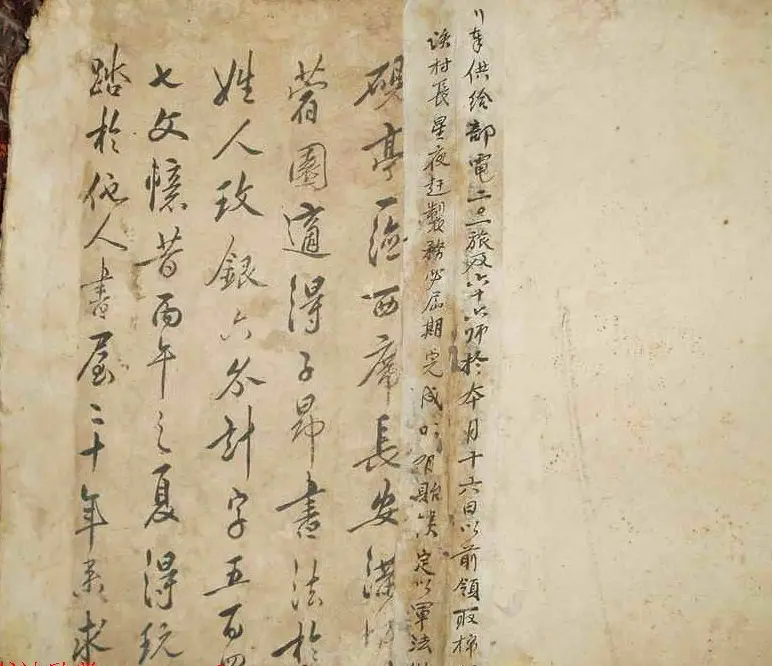 奉供给部電二〇一旅及六十六师於本月十六日以前領取棉
該村長星夜赶製務必屆期完成 有貽誤定以軍法
硯亭 西席長安
園適得子昂書法於
姓人玫銀六 計字五百
七文憶昔丙午之夏得玩
踏於他人書屋二十年 求